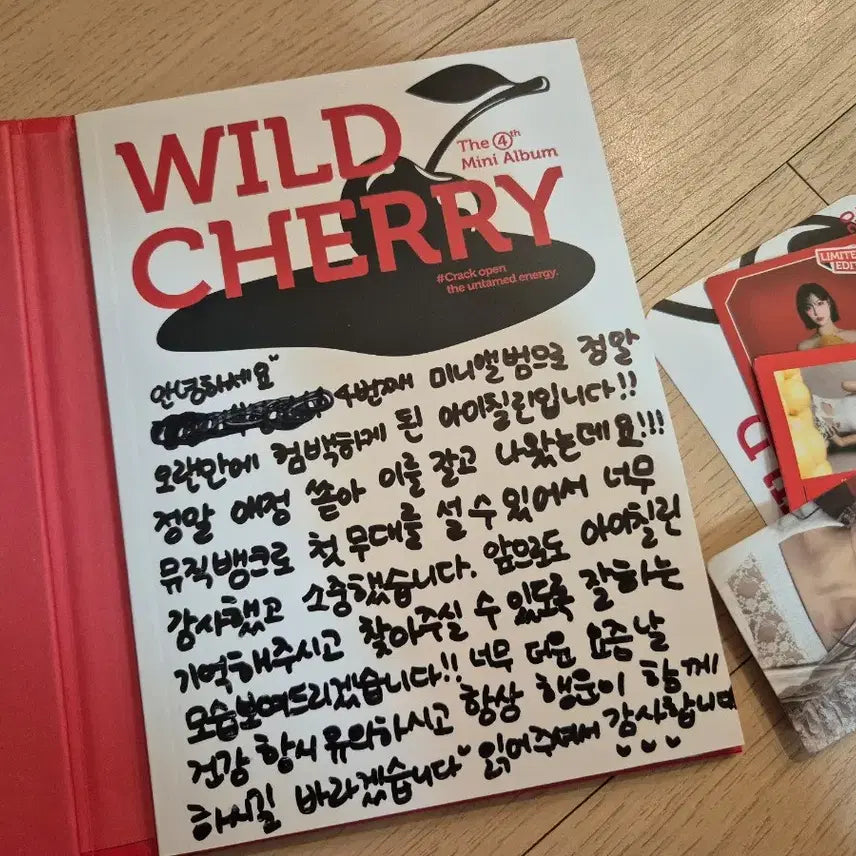 WILD
CHERRY
The ④th
Mini Album
#Crack open
the untamed energy.
안녕하세요
4번째 미니앨범으로 정말
오랜만에 컴백하게 된 아이칠린입니다!!
정말 애정 쏟아 이를 갈고 나왔는데요!!!
뮤직뱅크로 첫 무대를 설 수 있어서 너무
감사했고 소중했습니다. 앞으로도 아이칠린
기억해주시고 찾아주실 수 있도록 잘하는
모습보여드리겠습니다!! 너무 더운 요즘날
건강 항시 유의하시고 항상 행운이 함께
하시길 바라겠습니다 읽어주셔서 감사합니다
LIMITED
EDIT